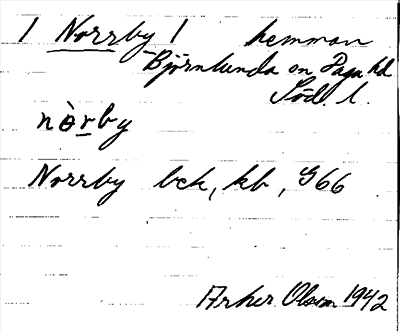 1 Norrby 1 hemman
Björnlunda sn Daga hd
Söd. l.
nòrby
Norrby bek, kb, G66
Arher Olsson 1942